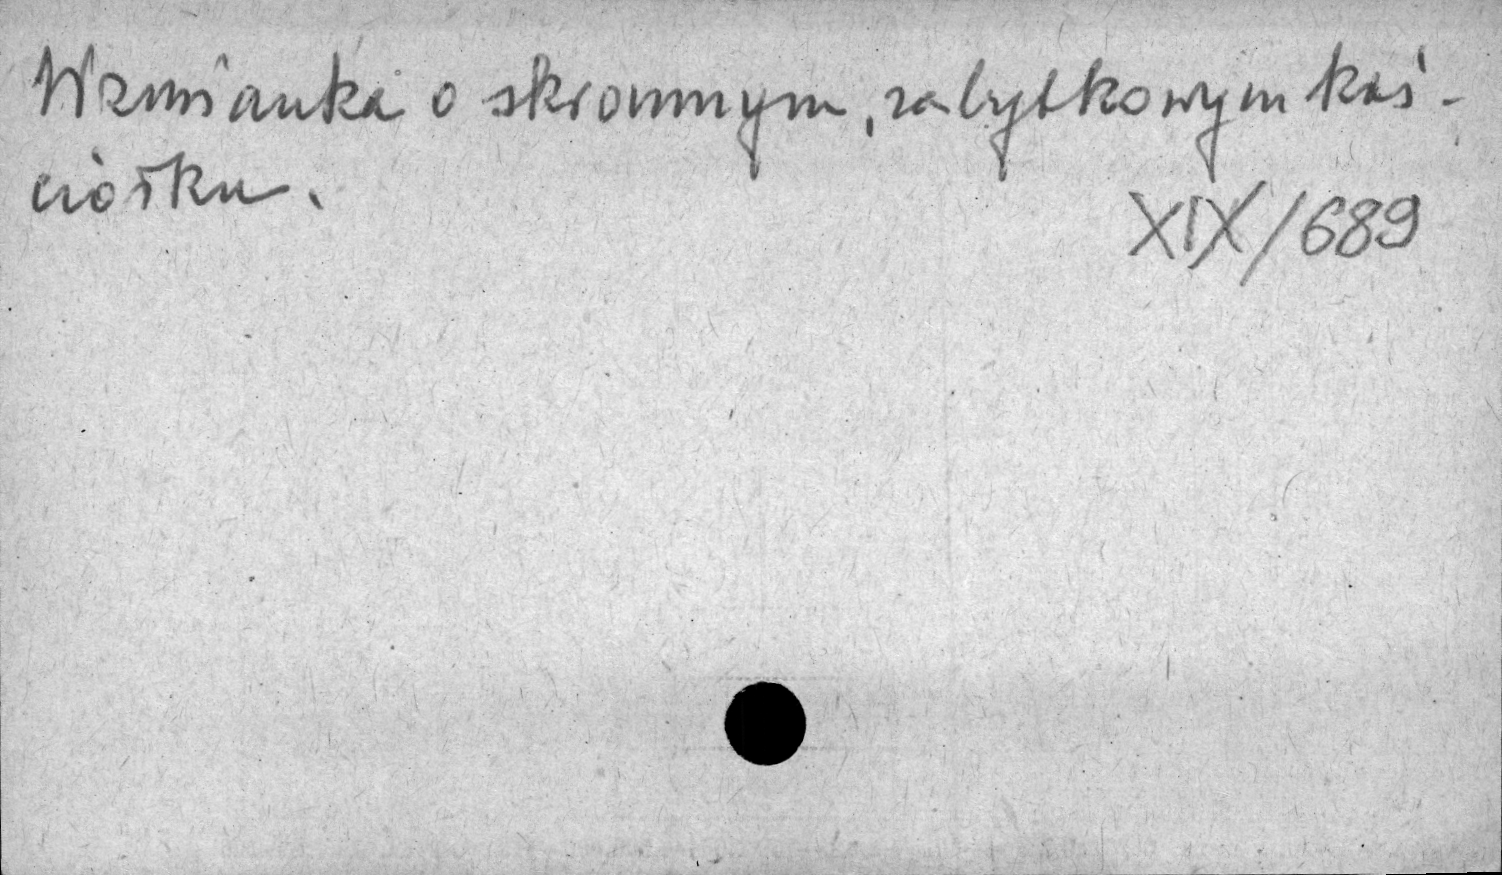 Wzmianka o skromnym, zabytkowym koś-
ciółku.
XIX/689